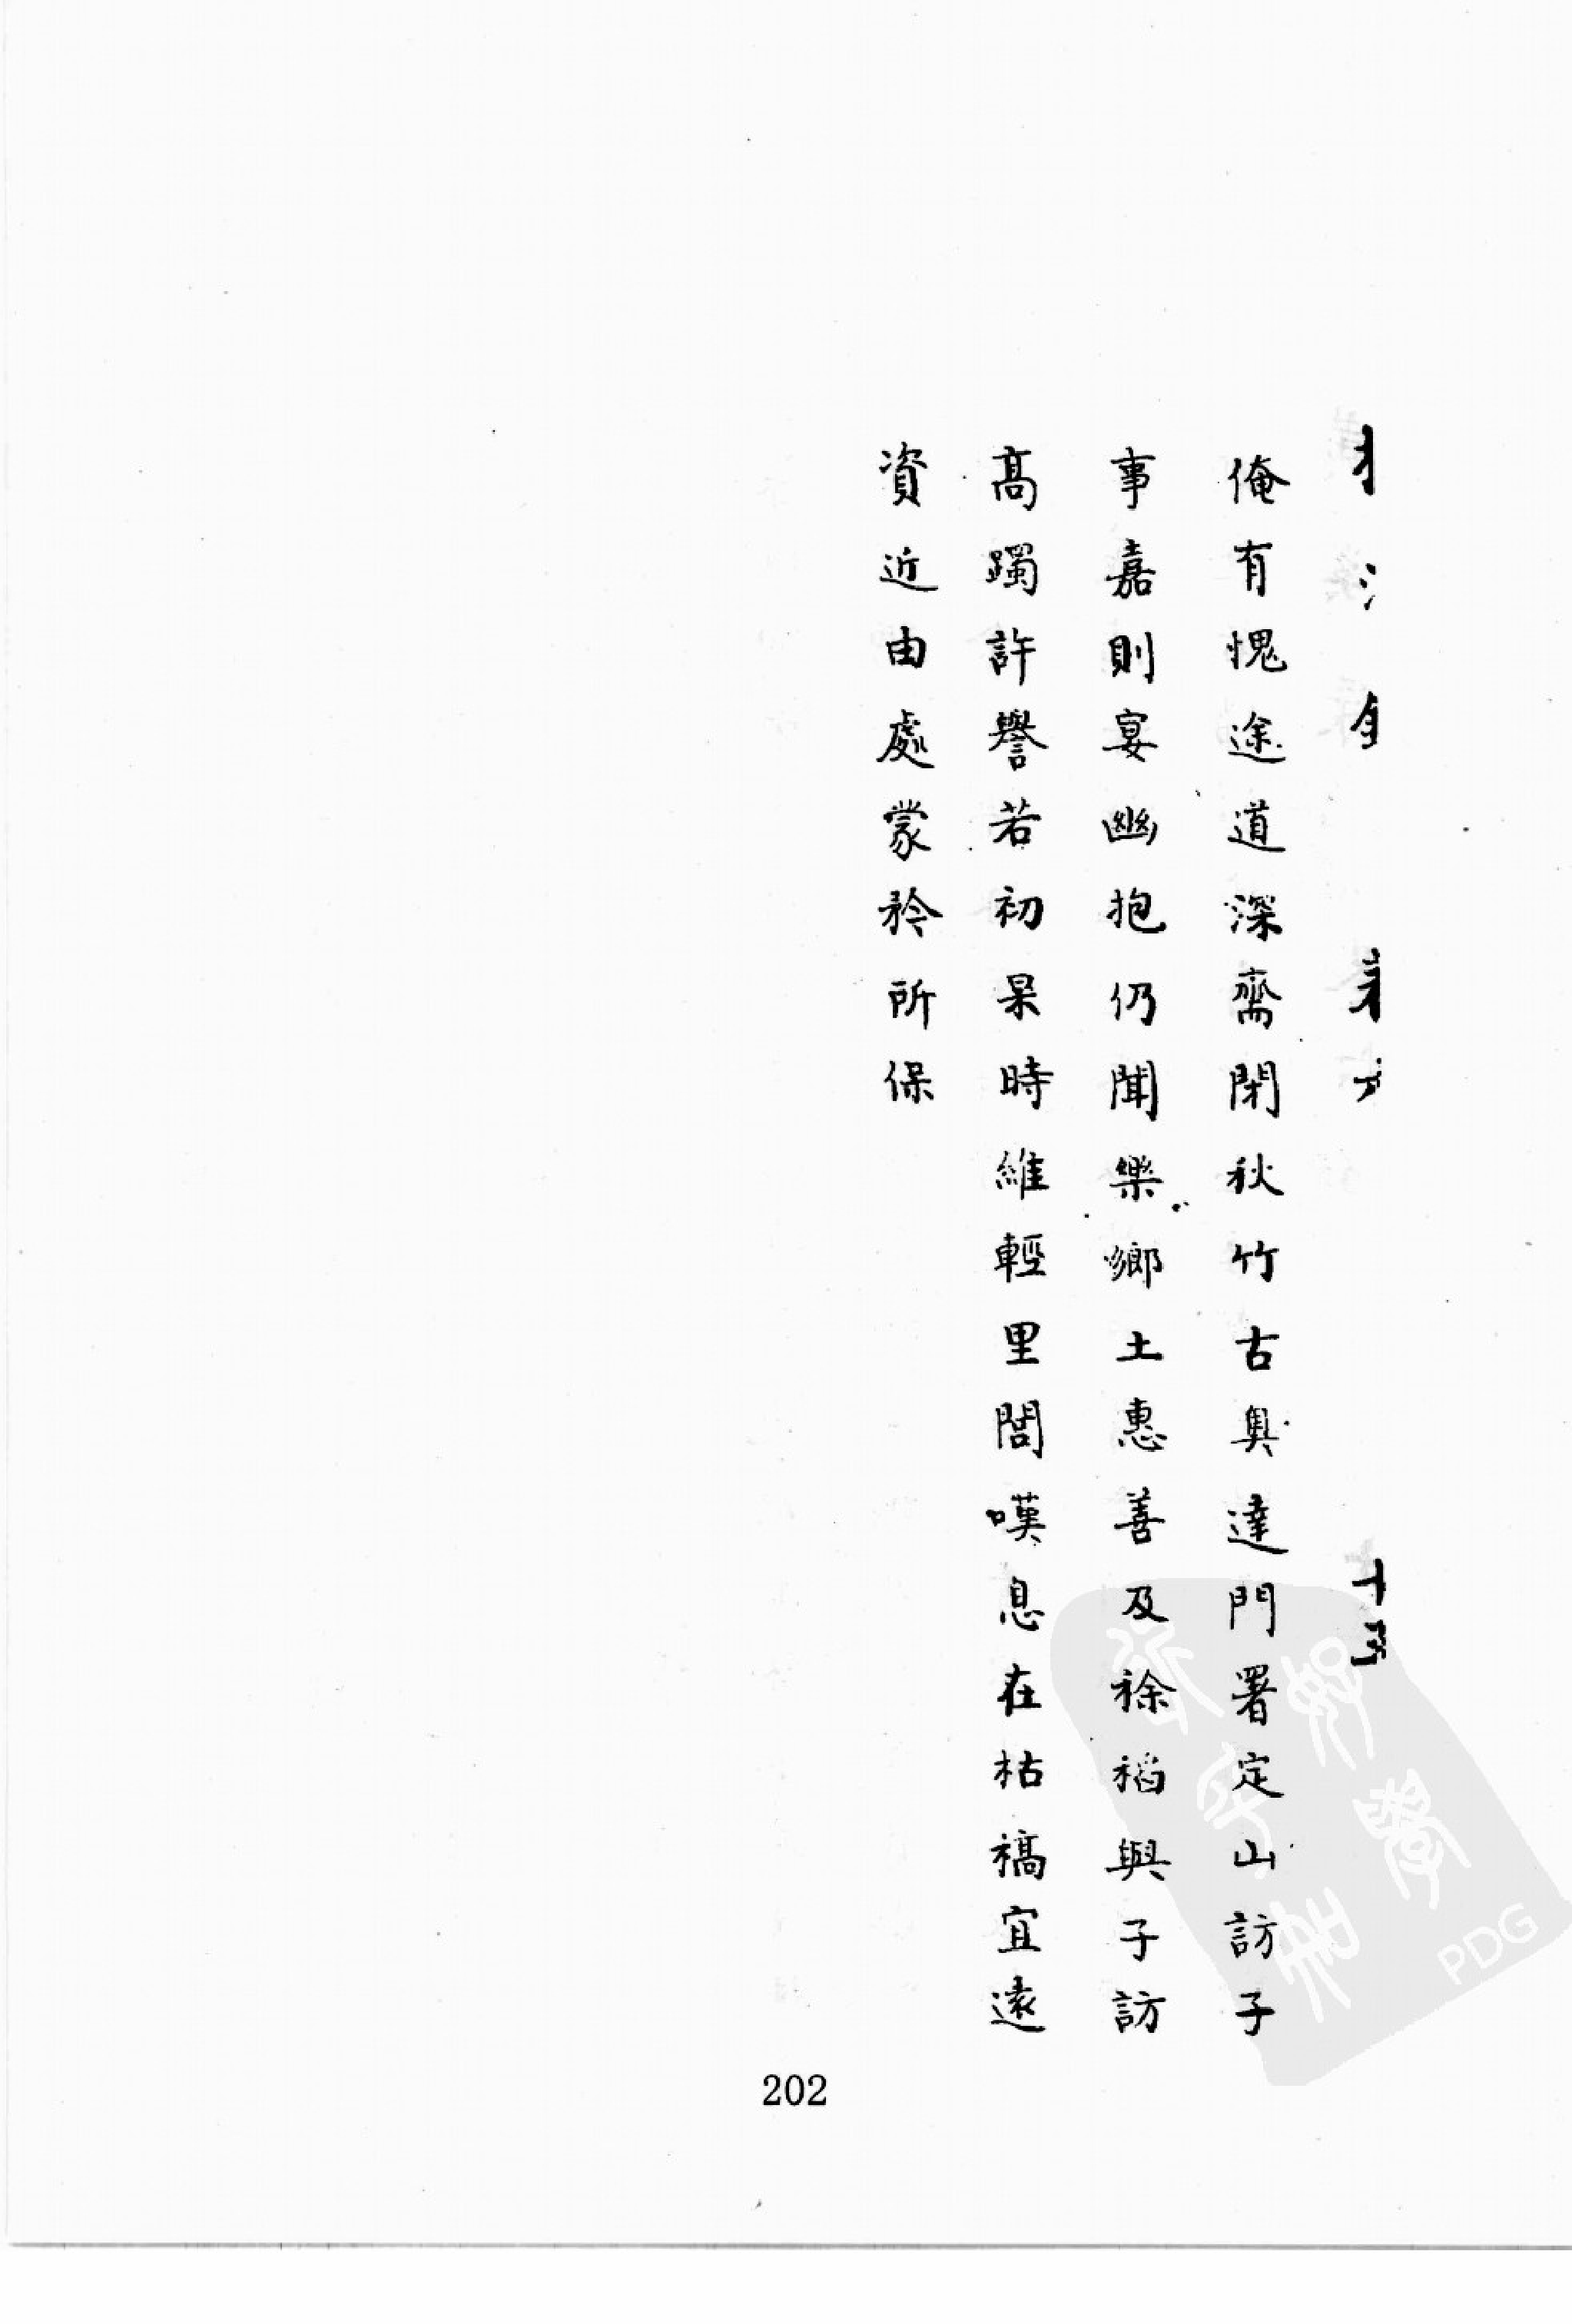 俺有愧途道深齋閉秋竹古奥達門署定山訪子
事嘉則宴幽抱仍聞樂鄉土惠善及徐稻與子訪
高躅許譽若初杲時維輕里閭嘆息在枯槁宜遠
資近由處蒙矜所保
202
PDG